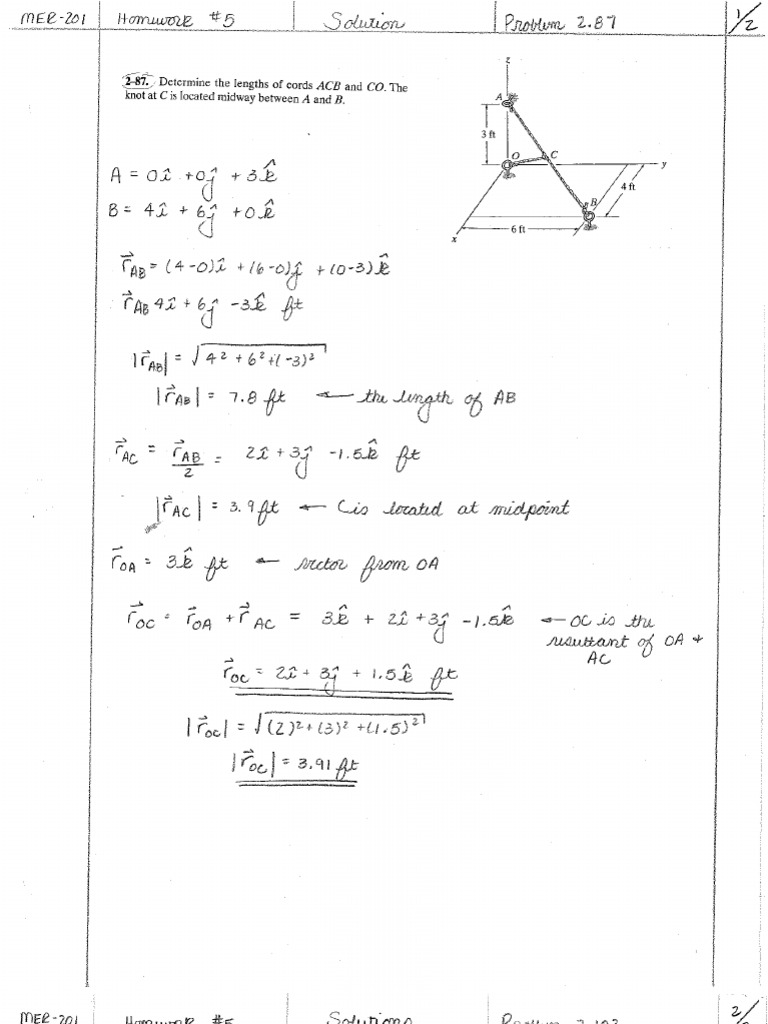 MER-201 Homework #5 Solution Problem 2.87 1/2
2-87. Determine the lengths of cords ACB and CO. The
knot at C is located midway between A and B.
z
A
3 ft
O
C
y
4 ft
B
6 ft
x
A = 0î + 0ĵ + 3k̂
B = 4î + 6ĵ + 0k̂
r⃗AB = (4-0)î + (6-0)ĵ + (0-3)k̂
r⃗AB 4î + 6ĵ - 3k̂ ft
|r⃗AB| = √4² + 6² + (-3)²
|r⃗AB| = 7.8 ft ← the length of AB
r⃗AC = r⃗AB/2 = 2î + 3ĵ - 1.5k̂ ft
|r⃗AC| = 3.9 ft ← C is located at midpoint
r⃗OA = 3k̂ ft ← vector from OA
r⃗OC = r⃗OA + r⃗AC = 3k̂ + 2î + 3ĵ - 1.5k̂ ← OC is the
resultant of OA +
AC
r⃗OC = 2î + 3ĵ + 1.5k̂ ft
|r⃗OC| = √(2)² + (3)² + (1.5)²
|r⃗OC| = 3.91 ft
MER-201 Homework #5 Solutions Problem 2/